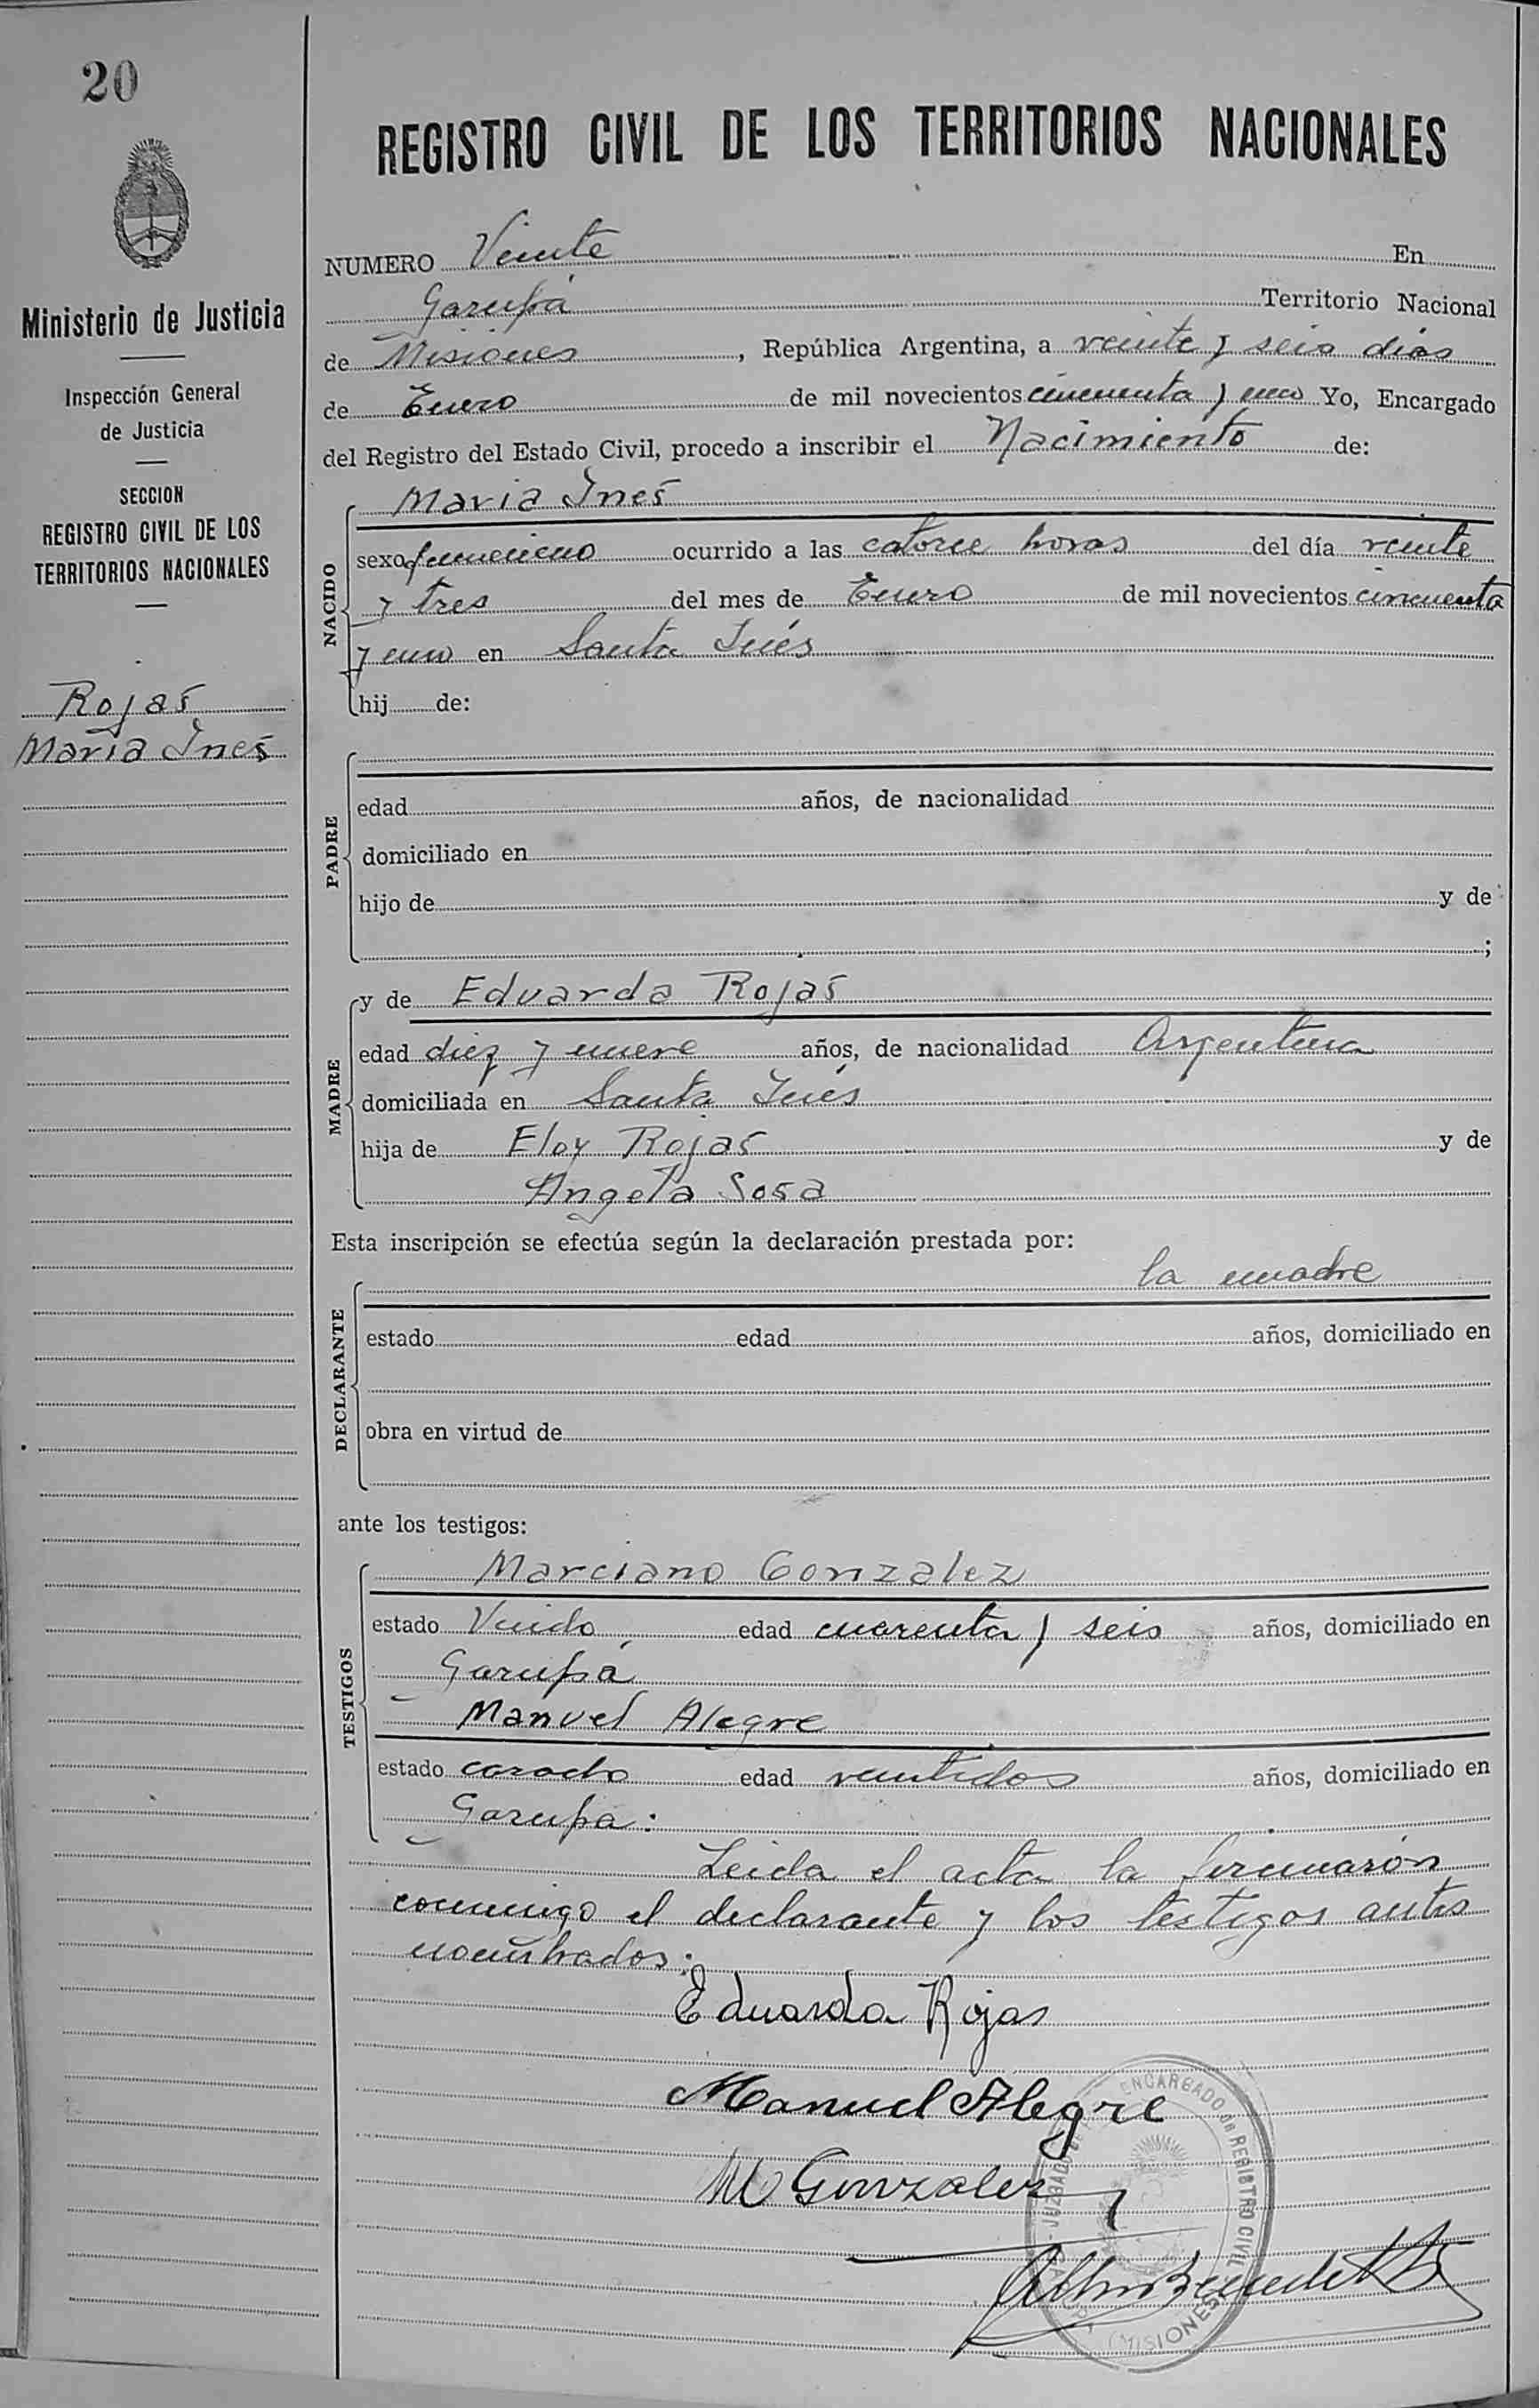 20
Ministerio de Justicia
Inspección General
de Justicia
SECCION
REGISTRO CIVIL DE LOS
TERRITORIOS NACIONALES
Rojas
Maria Ines
REGISTRO CIVIL DE LOS TERRITORIOS NACIONALES
NUMERO Veinte En
Garupá Territorio Nacional
de Misiones, República Argentina, a veinte y seis dias
de Enero de mil novecientos cincuenta y uno Yo, Encargado
del Registro del Estado Civil, procedo a inscribir el Nacimiento de:
NACIDO
Maria Ines
sexo femenino ocurrido a las catorce horas del día veinte
y tres del mes de Enero de mil novecientos cincuenta
y uno en Santa Inés
hij de:
PADRE
edad años, de nacionalidad
domiciliado en
hijo de y de
;
MADRE
y de Eduarda Rojas
edad diez y nueve años, de nacionalidad Argentina
domiciliada en Santa Inés
hija de Eloy Rojas y de
Angela Sosa
Esta inscripción se efectúa según la declaración prestada por:
DECLARANTE
la madre
estado edad años, domiciliado en
obra en virtud de
ante los testigos:
TESTIGOS
Marciano Gonzalez
estado Viudo edad cuarenta y seis años, domiciliado en
Garupá
Manuel Alegre
estado casado edad veintidos años, domiciliado en
Garupa:
Leida el acta la firmarón
conmigo el declarante y los testigos antes
nombrados:
Eduarda Rojas
Manuel Alegre
M Gonzalez
ENCARGADO DE REGISTRO CIVIL
MISIONES